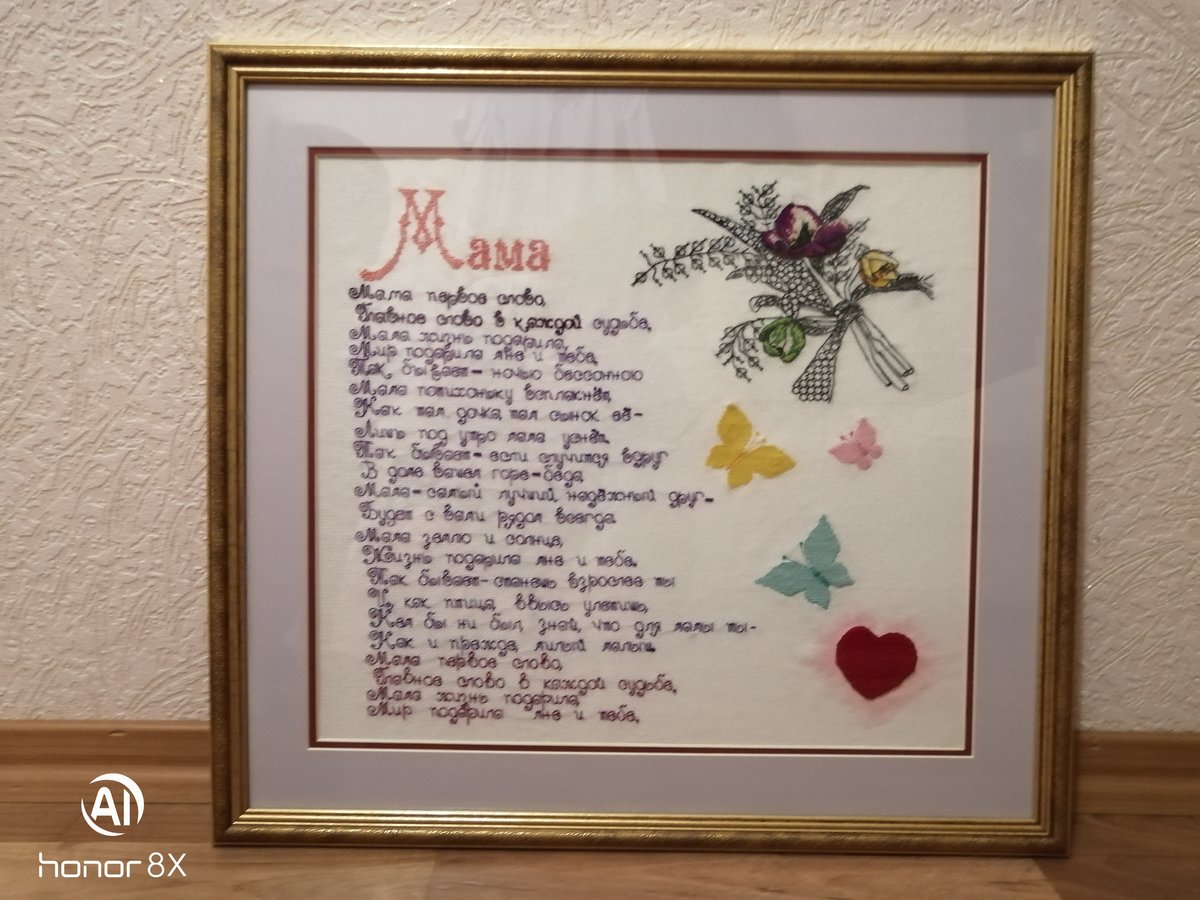 Мама
Мама первое слово,
Главное слово в каждой судьбе,
Мама жизнь подарила,
Мир подарила мне и тебе,
Так бывает - ночью бессонною
Мама потихоньку всплакнёт,
Как там дочка, там сынок её -
Лишь под утро мама уснёт.
Так бывает - если случится вдруг
В доме вашем горе-беда
Мама - самый лучший, надёжный друг -
Будет с вами рядом всегда.
Мама землю и солнце,
Жизнь подарила мне и тебе.
Так бывает - станешь взрослее ты
И, как птица, ввысь улетишь,
Кем бы ни был, знай, что для мамы ты -
Как и прежде, милый малыш.
Мама первое слово,
Главное слово в каждой судьбе,
Мама жизнь подарила,
Мир подарила мне и тебе,
AI
honor 8X